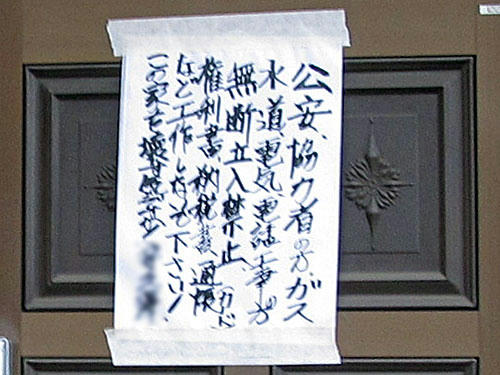 公安、協力者の方、ガス
水道、電気、電話工事の方
無断立入禁止(カド
権利書、納税書、通帳
など工作しないで下さい!
この家を